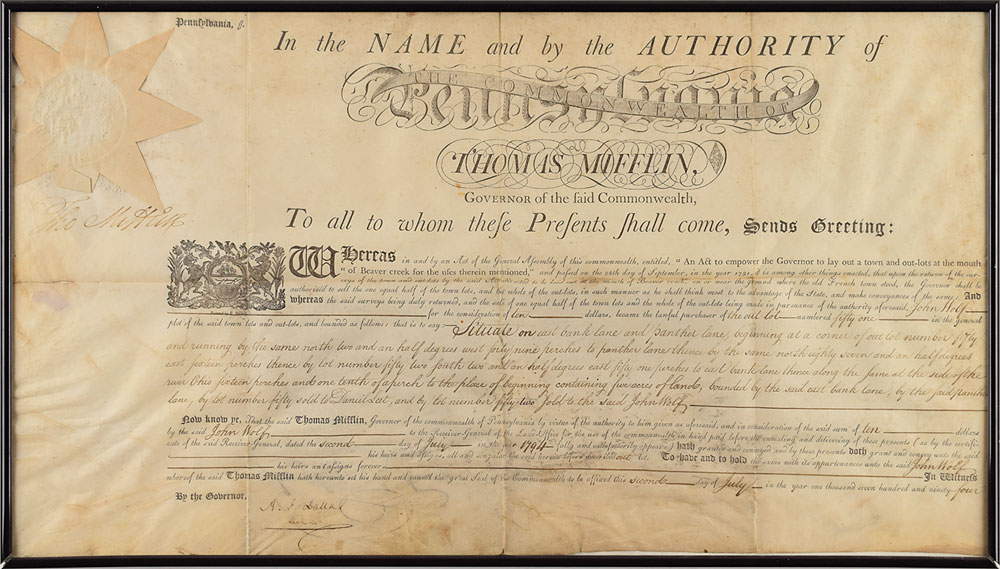 Pennsylvania, ſſ.
In the NAME and by the AUTHORITY of
THE COMMONWEALTH OF
Pennsylvania
THOMAS MIFFLIN,
GOVERNOR of the ſaid Commonwealth,
To all to whom theſe Preſents ſhall come, Sends Greeting:
Tho Mifflin
WHereas in and by an Act of the General Aſſembly of this commonwealth, entitled, "An Act to empower the Governor to lay out a town and out-lots at the mouth
"of Beaver creek for the uſes therein mentioned," and paſſed on the 28th day of September, in the year 1791, it is among other things enacted, that upon the return of the sur-
veys of the town and outlots by the said Act directed to be laid out at the mouth of Beaver creek, on or near the ground where the old French town stood, the Governor ſhall be
authorised to sell the one equal half of the town lots, and the whole of the out-lots, in such manner as he ſhall think most to the advantage of the State, and make conveyances of the same And
whereas the said surveys being duly returned, and the sale of one equal half of the town lots and the whole of the out-lots being made in pursuance of the authority aforeſaid, John Wolf
for the consideration of ten dollars, became the lawful purchaser of the out lot numbered fifty one in the general
plot of the said town lots and out-lots, and bounded as follows: that is to say: Situate on east bank lane and panther lane, beginning at a corner of out lot number fifty
and running by the same north two and an half degrees west forty nine perches to panther lane thence by the same north eighty seven and an half degrees
east sixteen perches thence by lot number fifty two south two and an half degrees east fifty one perches to east bank lane thence along the same at the side of the
river Ohio sixteen perches and one tenth of a perch to the place of beginning containing five acres of land, bounded by the said east bank lane, by the said panther
lane, by lot number fifty sold to Daniel Leet, and by lot number fifty two sold to the said John Wolf
Now know ye, That the said Thomas Mifflin, Governor of the commonwealth of Pennsylvania by virtue of the authority to him given as aforesaid, and in consideration of the said sum of ten dollars
by the said John Wolf to the Receiver General of the Land Office for the use of the commonwealth in hand paid before the ensealing and delivering of these presents as by the certifi-
cate of the said Receiver General, dated the second day of July in the year 1794 fully and satisfactorily appears, hath granted and conveyed and by these presents doth grant and convey unto the said
his heirs and assigns, all and singular the said out lot To have and to hold the same with its appurtenances unto the said John Wolf
his heirs and assigns forever In Witness
whereof the said Thomas Mifflin hath hereunto set his hand and caused the great Seal of the Commonwealth to be affixed this second day of July in the year one thousand seven hundred and ninety four
By the Governor,
A. J. Dallas